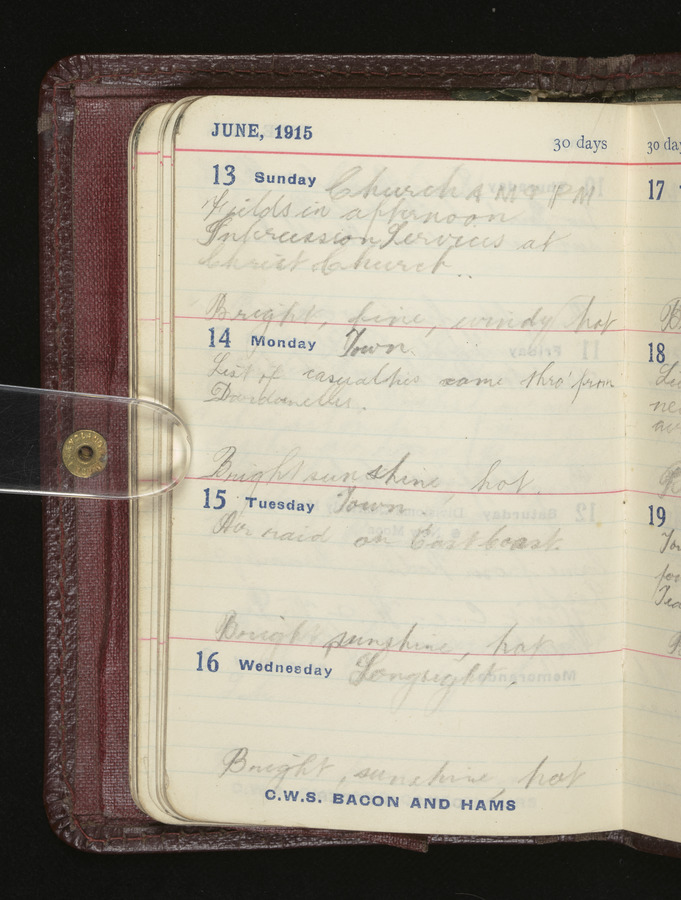 JUNE, 1915 30 days
13 Sunday Church A M & P M
Fields in afternoon
Intercession Services at
Christ Church..
Bright, fine, windy hot
14 Monday Town.
List of casualties came thro' from
Dardanelles.
Bright sunshine, hot.
15 Tuesday Town
Air raid on East Coast.
Bright sunshine, hot
16 Wednesday Longsight,
Bright, sunshine, hot
C.W.S. BACON AND HAMS
30 da
17
18
19